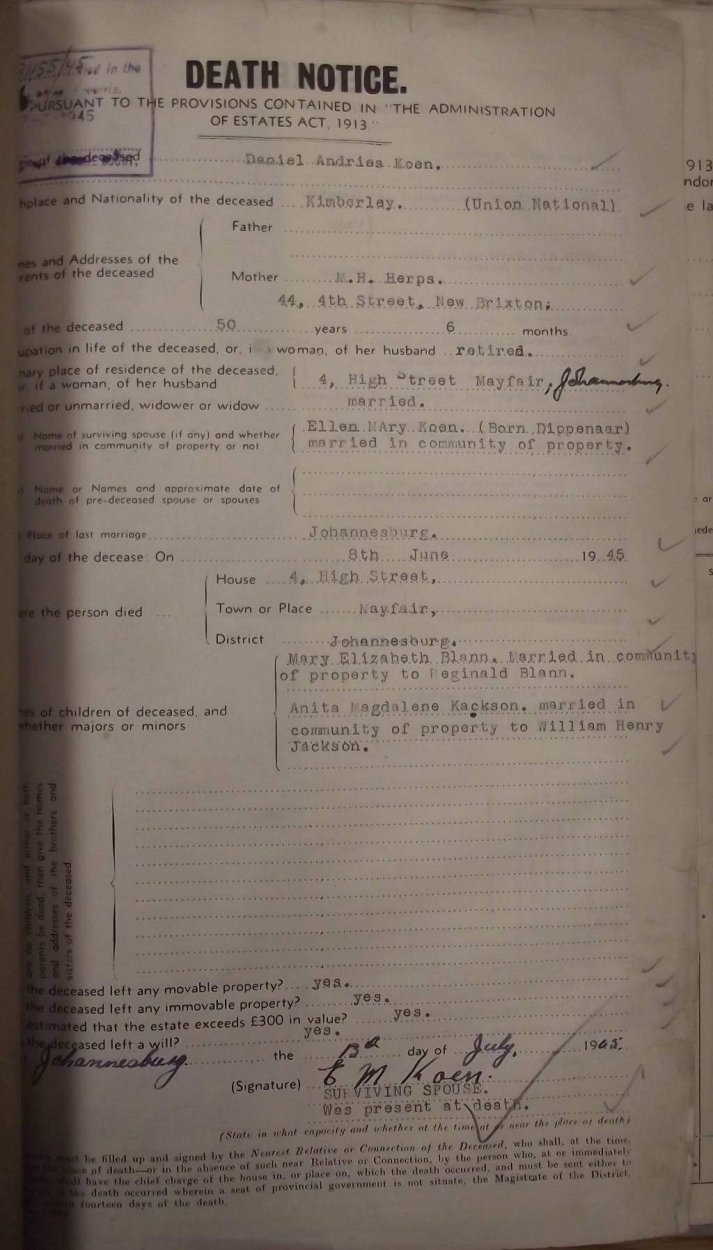 55/45
ed in the
1945
DEATH NOTICE.
PURSUANT TO THE PROVISIONS CONTAINED IN "THE ADMINISTRATION
OF ESTATES ACT, 1913."
of the deceased Daniel Andries Koen.
hplace and Nationality of the deceased Kimberley. (Union National)
Father
mes and Addresses of the
rents of the deceased
Mother M.H. Herps.
44, 4th Street, New Brixton;
of the deceased 50 years 6 months.
upation in life of the deceased, or, if a woman, of her husband retired.
nary place of residence of the deceased,
or, if a woman, of her husband 4, High Street Mayfair, Johannesburg.
ried or unmarried, widower or widow married.
Name of surviving spouse (if any) and whether
married in community of property or not
Ellen MAry Koen. (Born Dippenaar)
married in community of property.
Name or Names and approximate date of
death of pre-deceased spouse or spouses
Place of last marriage Johannesburg.
day of the decease: On 8th June 1945
House 4, High Street,
ere the person died Town or Place Mayfair,
District Johannesburg.
Mary Elizabeth Blann. Married in community
of property to Reginald Blann.
mes of children of deceased, and
whether majors or minors
Anita Magdalene Kackson. married in
community of property to William Henry
Jackson.
are no children, and either or both
parents be dead, then give the names
and addresses of the brothers and
sisters of the deceased
the deceased left any movable property? yes.
the deceased left any immovable property? yes.
estimated that the estate exceeds £300 in value? yes.
the deceased left a will? yes.
Johannesburg the 13th day of July, 1945.
(Signature) E M Koen.
SURVIVING SPOUSE.
Was present at death.
(State in what capacity and whether at the time at or near the place of death)
must be filled up and signed by the Nearest Relative or Connection of the Deceased, who shall, at the time,
place of death—or in the absence of such near Relative or Connection, by the person who, at or immediately
shall have the chief charge of the house in, or place on, which the death occurred, and must be sent either to
if the death occurred wherein a seat of provincial government is not situate, the Magistrate of the District,
within fourteen days of the death.
913
ndon
e la